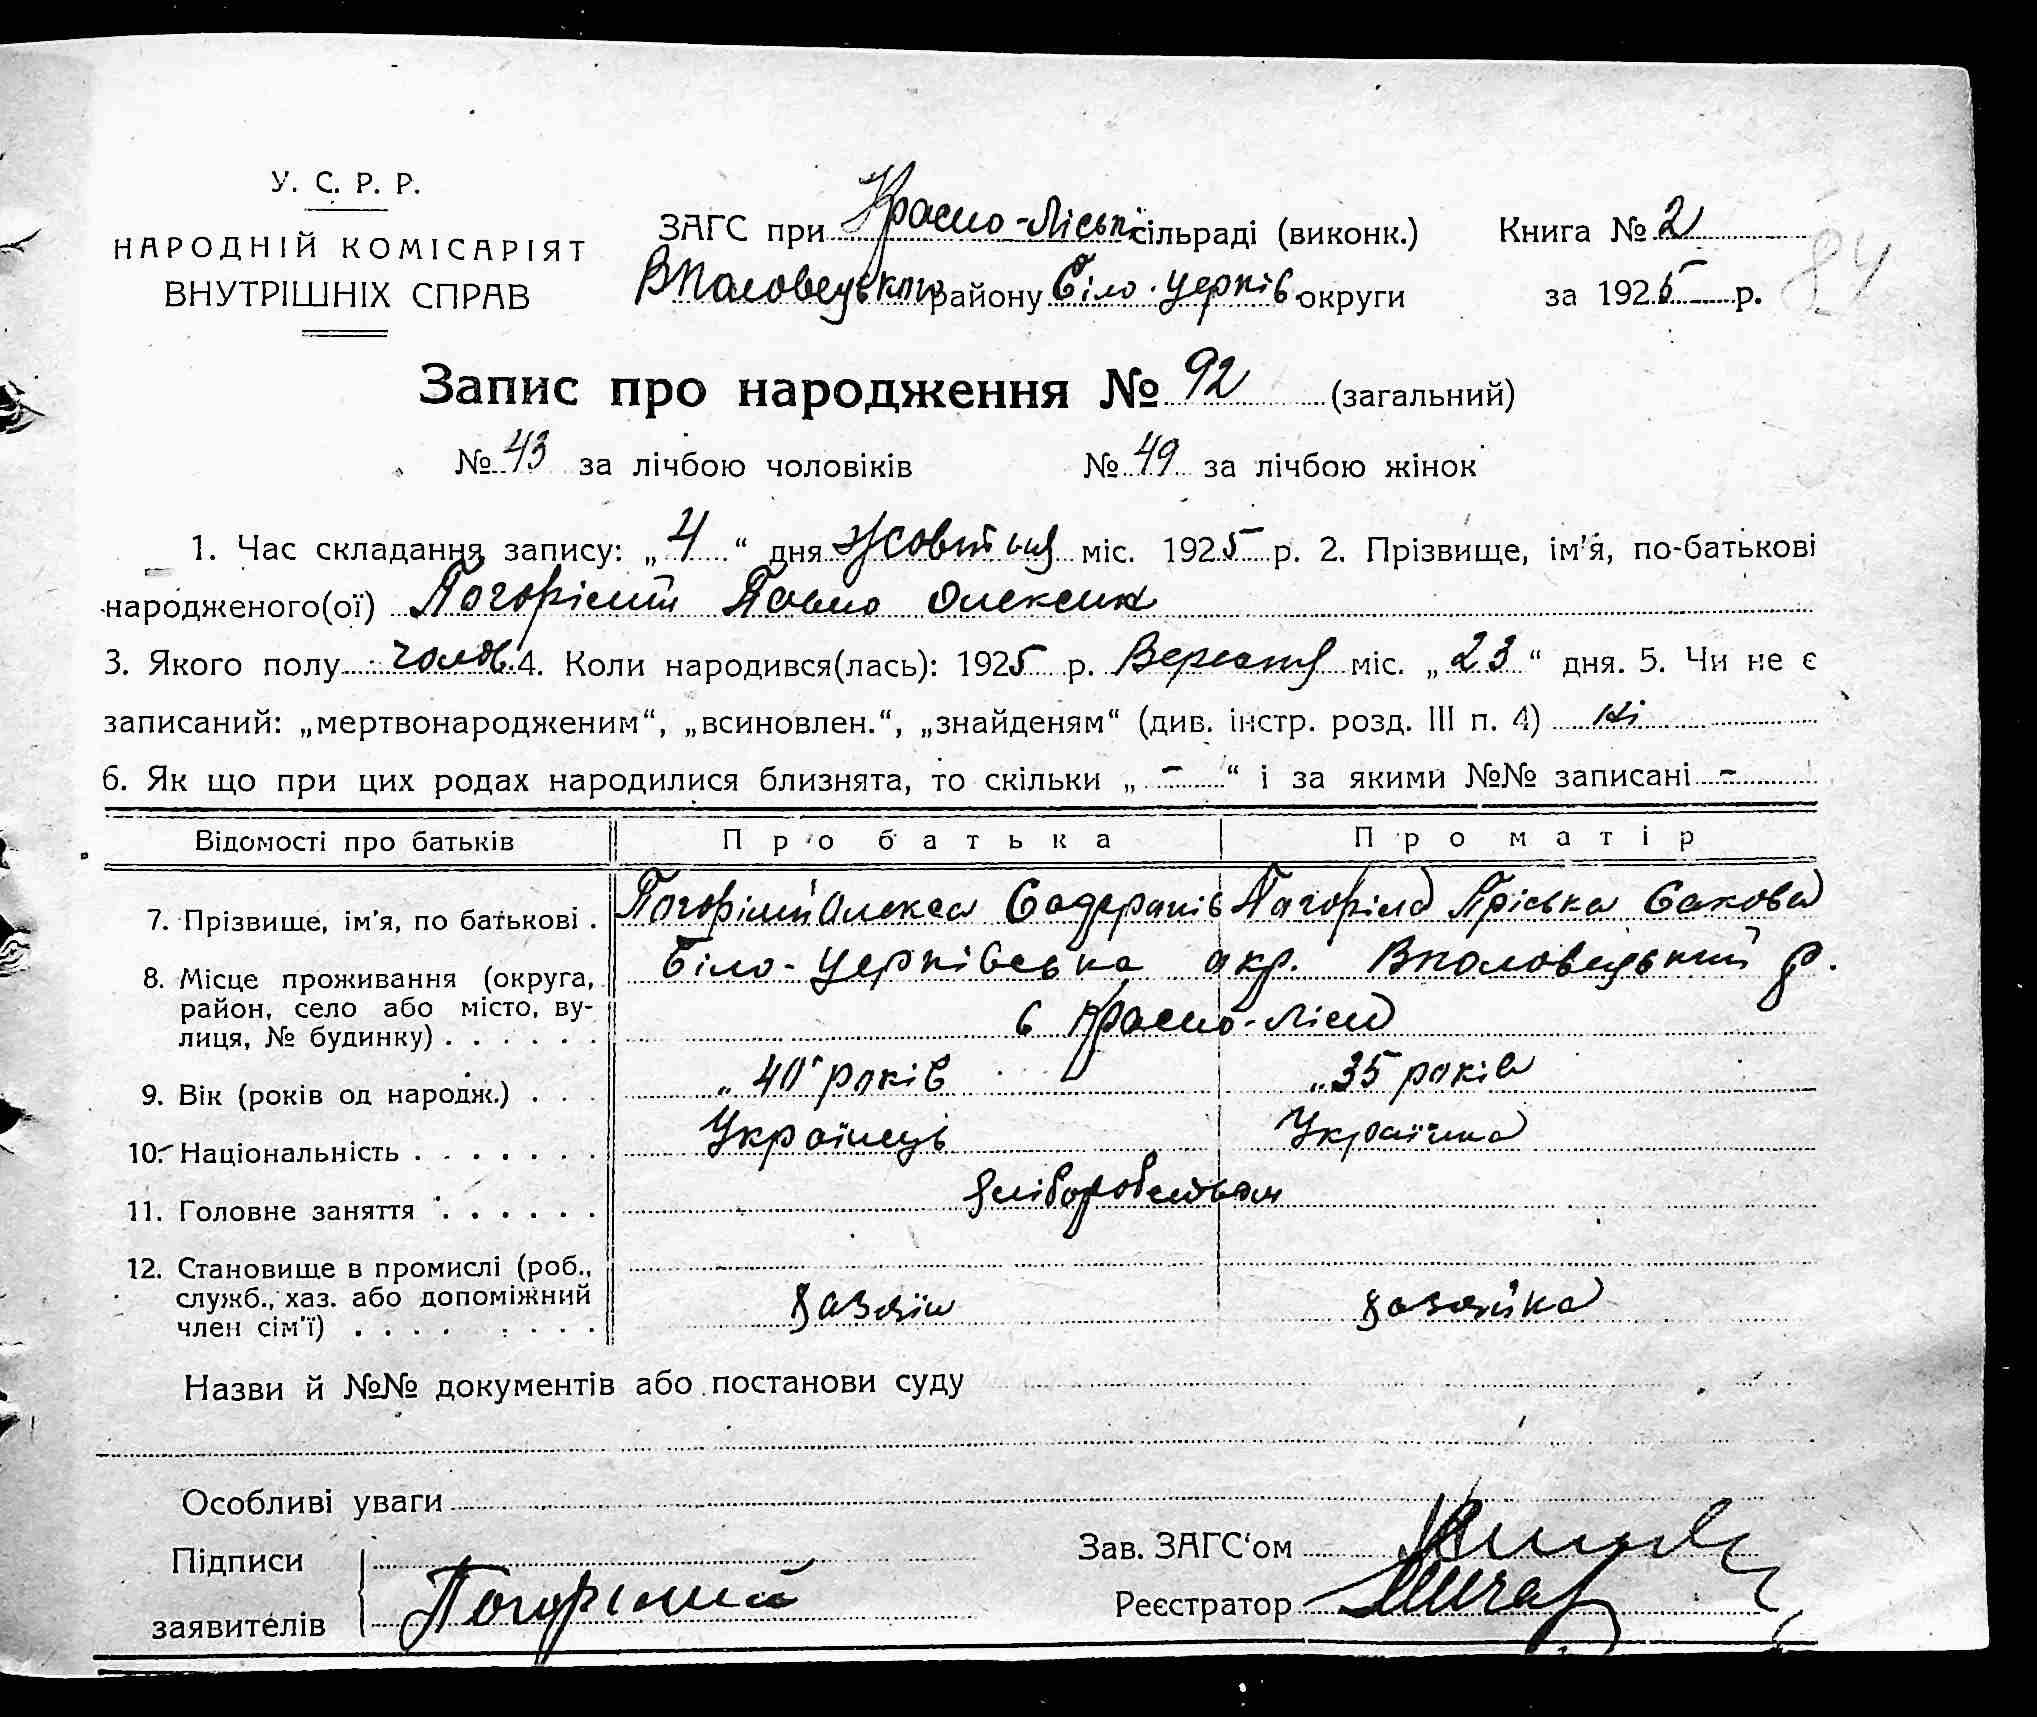 У. С. Р. Р.
НАРОДНІЙ КОМІСАРІЯТ
ВНУТРІШНІХ СПРАВ
ЗАГС при Красно-Ліськ. сільраді (виконк.)
ВПоловецького району Біло-Церків. округи
Книга № 2
за 1925 р.
84
Запис про народження № 92 (загальний)
№ 43 за лічбою чоловіків № 49 за лічбою жінок
1. Час складання запису: „4“ дня Жовтня міс. 1925 р. 2. Прізвище, ім'я, по-батькові
народженого(ої) Погорілий Павло Олексик
3. Якого полу чолов. 4. Коли народився(лась): 1925 р. Вересня міс. „23“ дня. 5. Чи не є
записаний: „мертвонародженим“, „всиновлен.“, „знайденям“ (див. інстр. розд. III п. 4) ні
6. Як що при цих родах народилися близнята, то скільки „-“ і за якими №№ записані -
Відомості про батьків Про батька Про матір
7. Прізвище, ім'я, по батькові . Погорілий Олекса Погоріла Пріська Сакова
8. Місце проживання (округа, Біло-Церківська окр. ВПоловецький р.
район, село або місто, ву- с Красно-Ліси
лиця, № будинку) . . . . . .
9. Вік (років од народж.) . . . „40 років „35 років
10. Національність . . . . . . . Українець Українка
11. Головне заняття . . . . . . Хліборобством
12. Становище в промислі (роб.,
служб., хаз. або допоміжний хазяїн хазяйка
член сім'ї) . . . . . . . .
Назви й №№ документів або постанови суду
Особливі уваги
Підписи
заявителів Погорілий
Зав. ЗАГС'ом
Реєстратор